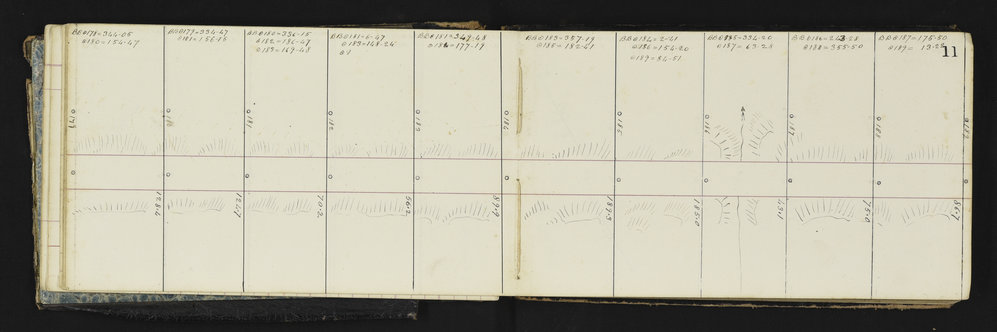 BB@178=344-05
@180=154-47
BB@179=334-47
@181=156-15
BB@180=336-15
@182=186-47
@183=169-48
BB@181=6-47
@183=148-24
BB@182=349-48
@184=177-19
BB@183=357-19
@185=182-41
BB@184=2-41
@186=154-20
@189=84-51
BB@185=334-20
@187=63-28
BB@186=243-28
@188=355-50
BB@187=175-50
@189=13-28
11
0179
0180
0181
0182
0183
0184
0185
0186
0187
0188
0189
128.6
124.7
70.2
56.2
89.9
189.3
185.0
49.1
75.0
86.7